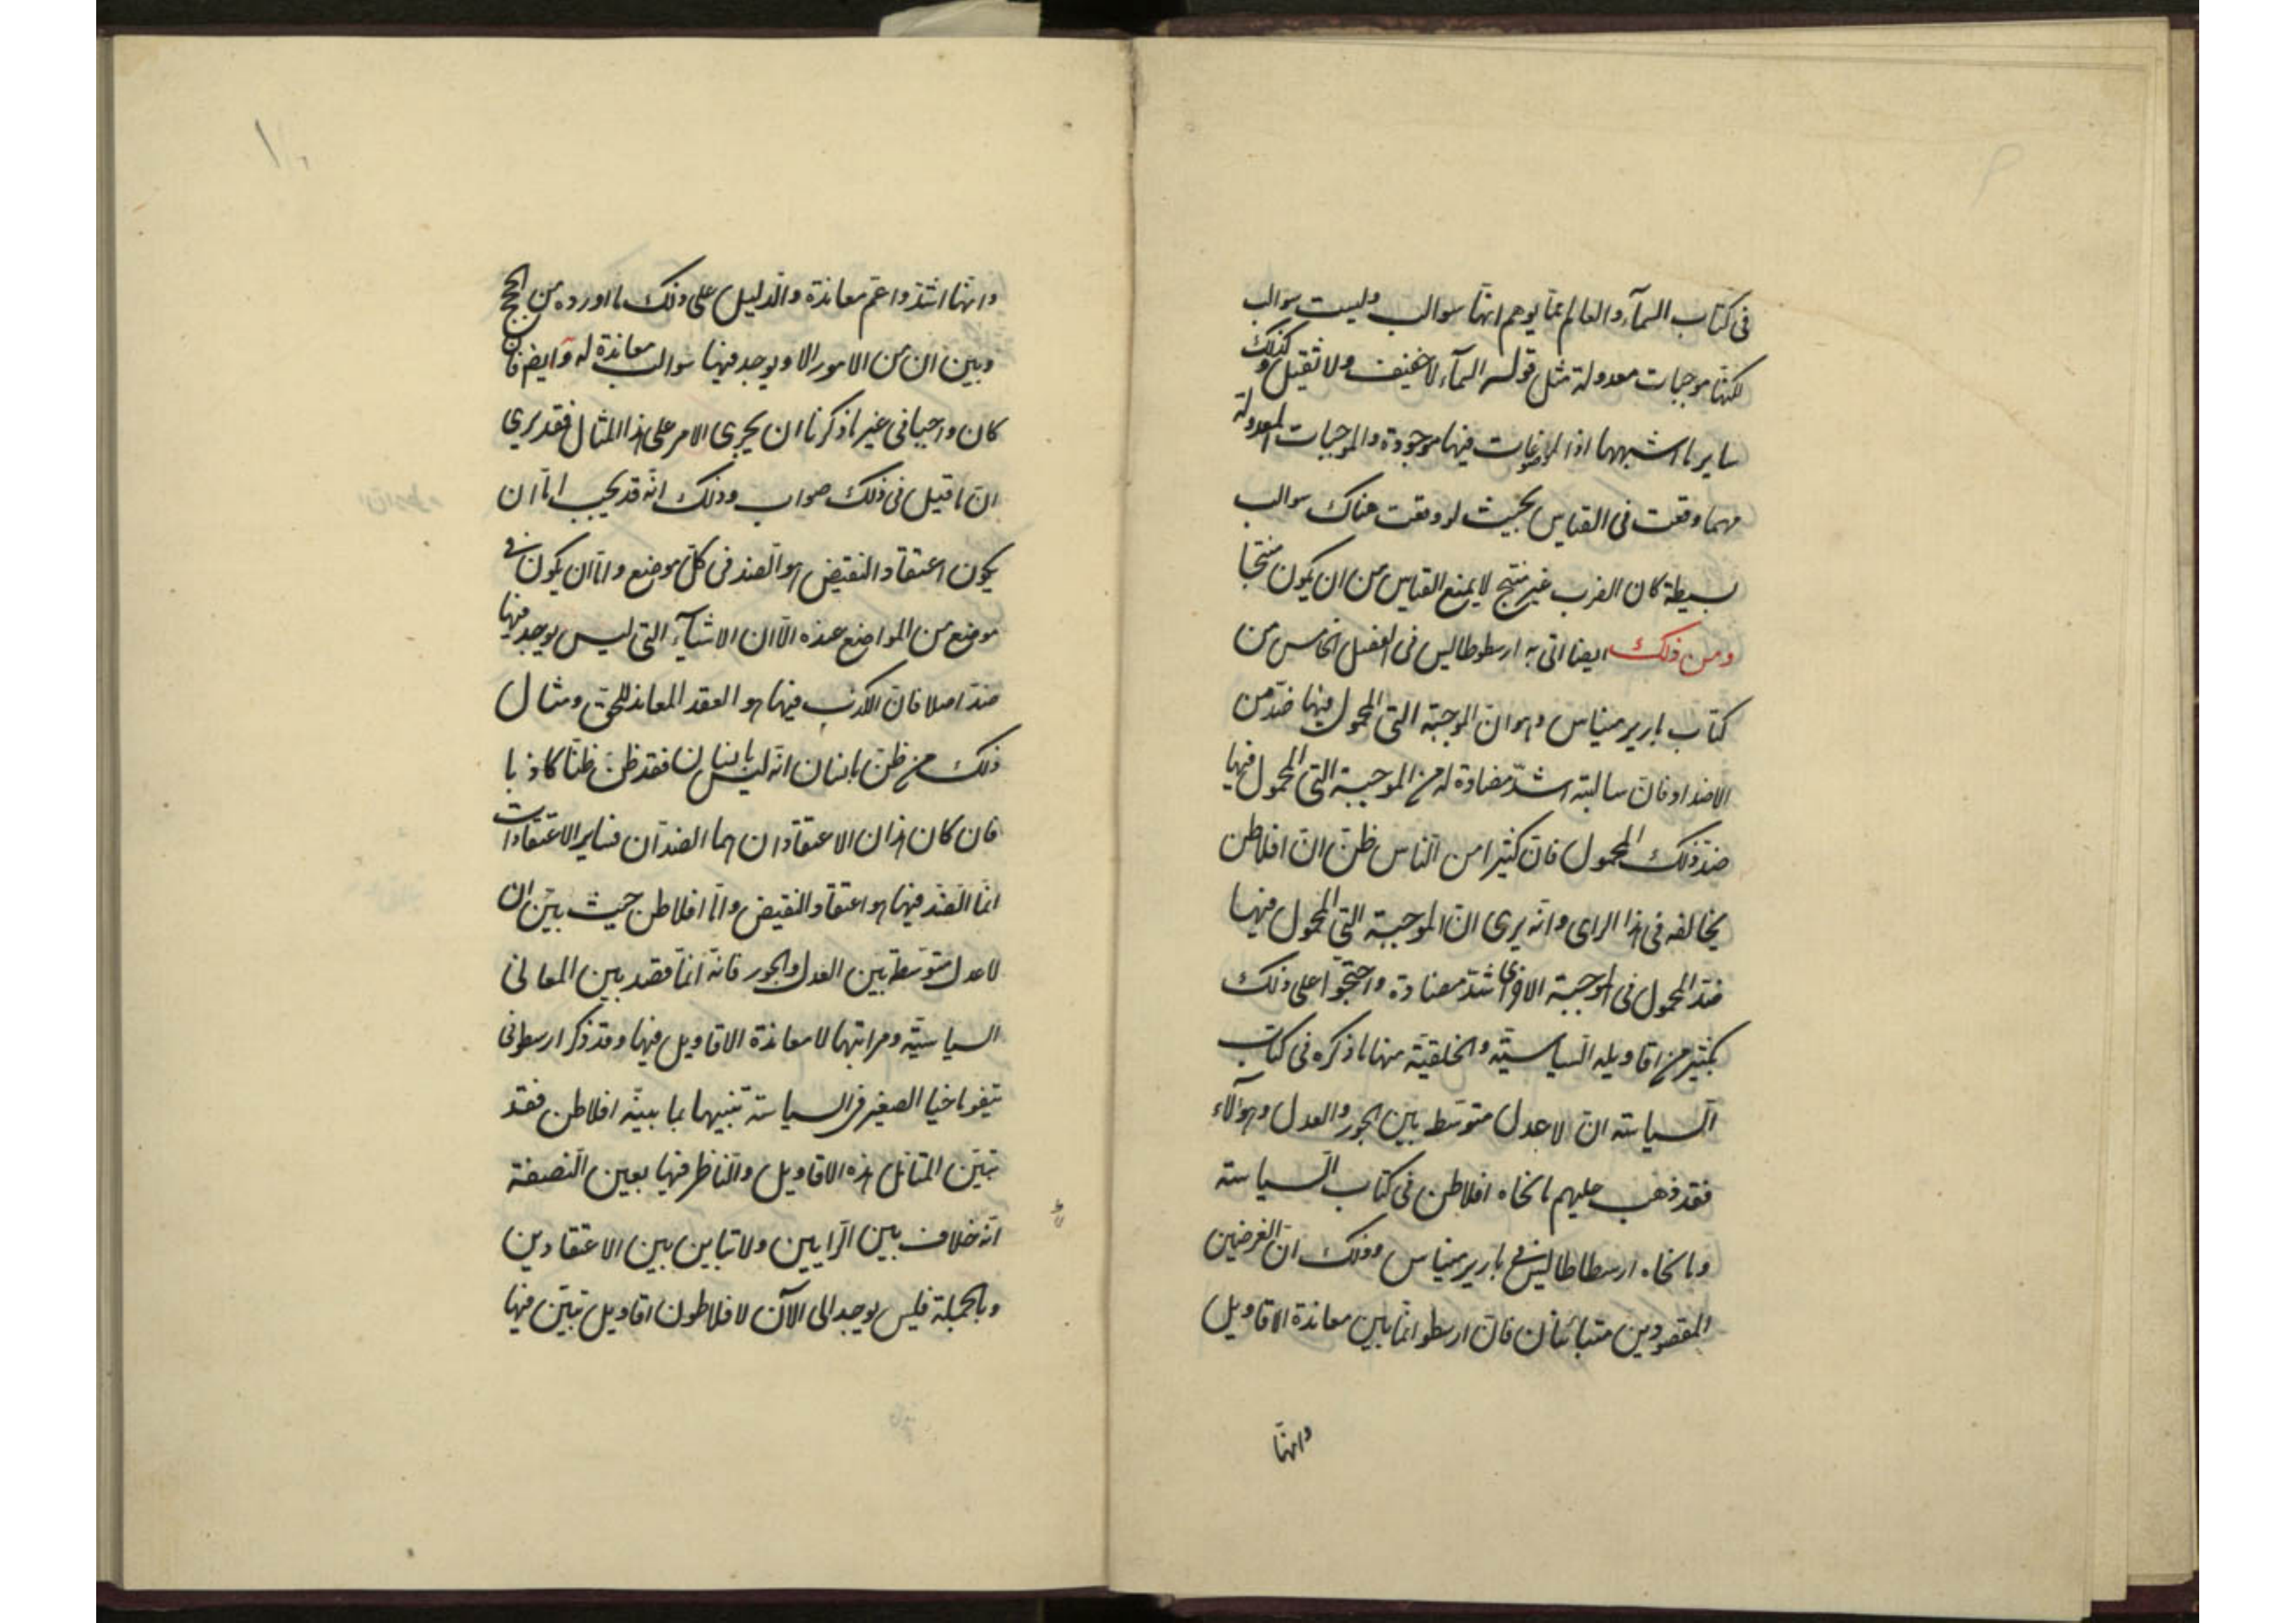 في كتاب السمآء والعالم عما يوهم انها سوالب وليست سوالب
لكنها موجبات معدولة مثل قوله السمآء لا خفيف ولا ثقيل وكذلك
ساير ما اشبهها اذ الموضوعات فيها موجودة والموجبات المعدولة
مهما وقعت في القياس بحيث لو وقعت هناك سوالب
بسيطة كان الضرب غير منتج لا يمنع القياس من ان يكون منتجا
ومن ذلك ايضا اتى به ارسطوطاليس في الفصل الخامس من
كتاب باريرمنياس وهو ان الموجبة التي المحمول فيها ضد من
الاضداد فان سالبته اشد مضادة له من الموجبة التي المحمول فيها
ضد ذلك المحمول فان كثيرا من الناس ظن ان افلاطن
يخالفه في هذا الراى وانه يرى ان الموجبة التي المحمول فيها
ضد المحمول في الموجبة الاخرى اشد مضادة واحتجوا على ذلك
بكثير من اقاويله السياسية والخلقية منها ما ذكره في كتاب
السياسته ان لا عدل متوسط بين الجور والعدل وهؤلاء
فقد ذهب عليهم ما نحاه افلاطن في كتاب السياسته
وما نحاه ارسطاطاليس في باريرمنياس وذلك ان الغرضين
المقصودين متبائنان فان ارسطو انما بين معاندة الاقاويل
وانها
وانها اشد واعم معاندة والدليل على ذلك ما اورده من الحجج
وبين ان من الامور الا ويوجد فيها سوالب معاندة له وايضا فان
كان واجبا في غير ما ذكرنا ان يجرى الامر على هذا المثال فقد يرى
ان ما قيل في ذلك صواب وذلك انه قد يجب اما ان
يكون اعتقاد النقيض هو الضد في كل موضع واما ان يكون في
موضع من المواضع عنده الا ان الاشيآء التي ليس يوجد فيها
ضد اصلا فان الكذب فيها هو العقد المعاند للحق ومثال
ذلك من ظن بانسان انه ليس بانسان فقد ظن ظنا كاذبا
فان كان هذان الاعتقادان هما الضدان فساير الاعتقادات
انما الضد فيها هو اعتقاد النقيض واما افلاطن حيث بين ان
لا عدل متوسط بين العدل والجور فانه انما قصد بين المعاني
السياسية ومراتبها لا معاندة الاقاويل فيها وقد ذكر ارسطو في
نيقوماخيا الصغير في السياسة تنبيها بما بينه افلاطن فقد
تبين المتامل هذه الاقاويل والناظر فيها بعين النصفة
انه خلاف بين الرايين ولا تباين بين الاعتقادين
وبالجملة فليس يوجد الى الآن لافلاطون اقاويل تبين فيها